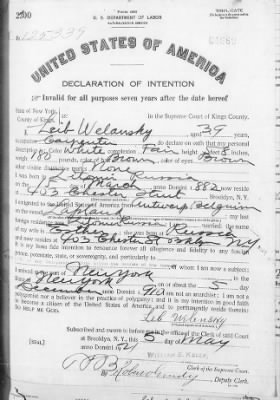 2200
U. S. DEPARTMENT OF LABOR
UNITED STATES OF AMERICA
DECLARATION OF INTENTION
Invalid for all purposes seven years after the date hereof
State of New York,
County of Kings,
In the Supreme Court of Kings County.
I, Leib Welansky aged 39 years,
occupation Carpenter do declare on oath that my personal
description is: Color White, complexion Fair, height 5 feet 8 inches,
weight 180 pounds, color of hair Brown, color of eyes Brown
None
I was born in Russia
March anno Domini 1882 now reside
at 403 Chester Street
I emigrated to the United States of America from Antwerp Belgium
my wife is Russia
403 Chester St Brooklyn NY
It is my bona fide intention to renounce forever all allegiance and fidelity to any foreign
prince, potentate, state, or sovereignty, and particularly to
of whom I am now a subject;
I arrived at the port of New York
State of New York on or about the 5 day
anno Domini I am not an anarchist; I am not a
polygamist nor a believer in the practice of polygamy; and it is my intention in good faith
to become a citizen of the United States of America and to permanently reside therein:
SO HELP ME GOD.
Subscribed and sworn to before me in the office of the Clerk of said Court
at Brooklyn, N. Y., this 5 day of May
anno Domini 1921
[SEAL]
Clerk of the Supreme Court.
Deputy Clerk.